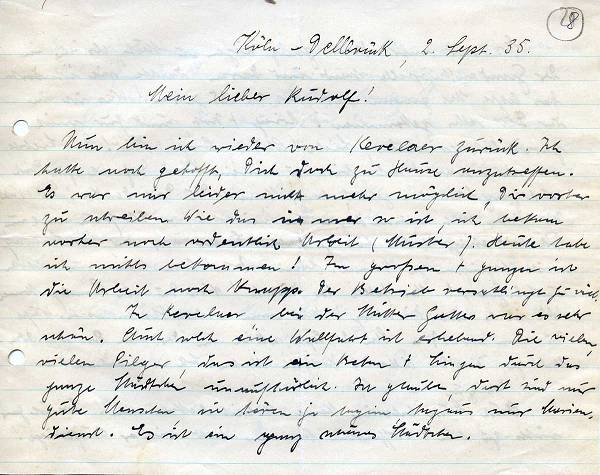 28
Köln-Dellbrück, 2. Sept. 35.
Mein lieber Rudolf!
Nun bin ich wieder von Kevelaer zurück. Ich
hatte noch gehofft, Dich doch zu Hause anzutreffen.
Es war mir leider nicht mehr möglich, Dir vorher
zu schreiben. Wie das immer so ist, ich bekam
vorher noch ordentlich Arbeit (Muster). Heute habe
ich nichts bekommen! Im großen + ganzen ist
die Arbeit noch knapp. Der Betrieb verschlingt zu viel.
In Kevelaer bei der Mutter Gottes war es sehr
schön. Auch solch eine Wallfahrt ist erhebend. Die vielen,
vielen Pilger, das ist ein Beten + Singen durch das
ganze Städtchen unaufhörlich. Ich glaube, dort sind nur
gute Menschen, sie hören ja nur Marien-
dienst. Es ist ein ganz schönes Städtchen.